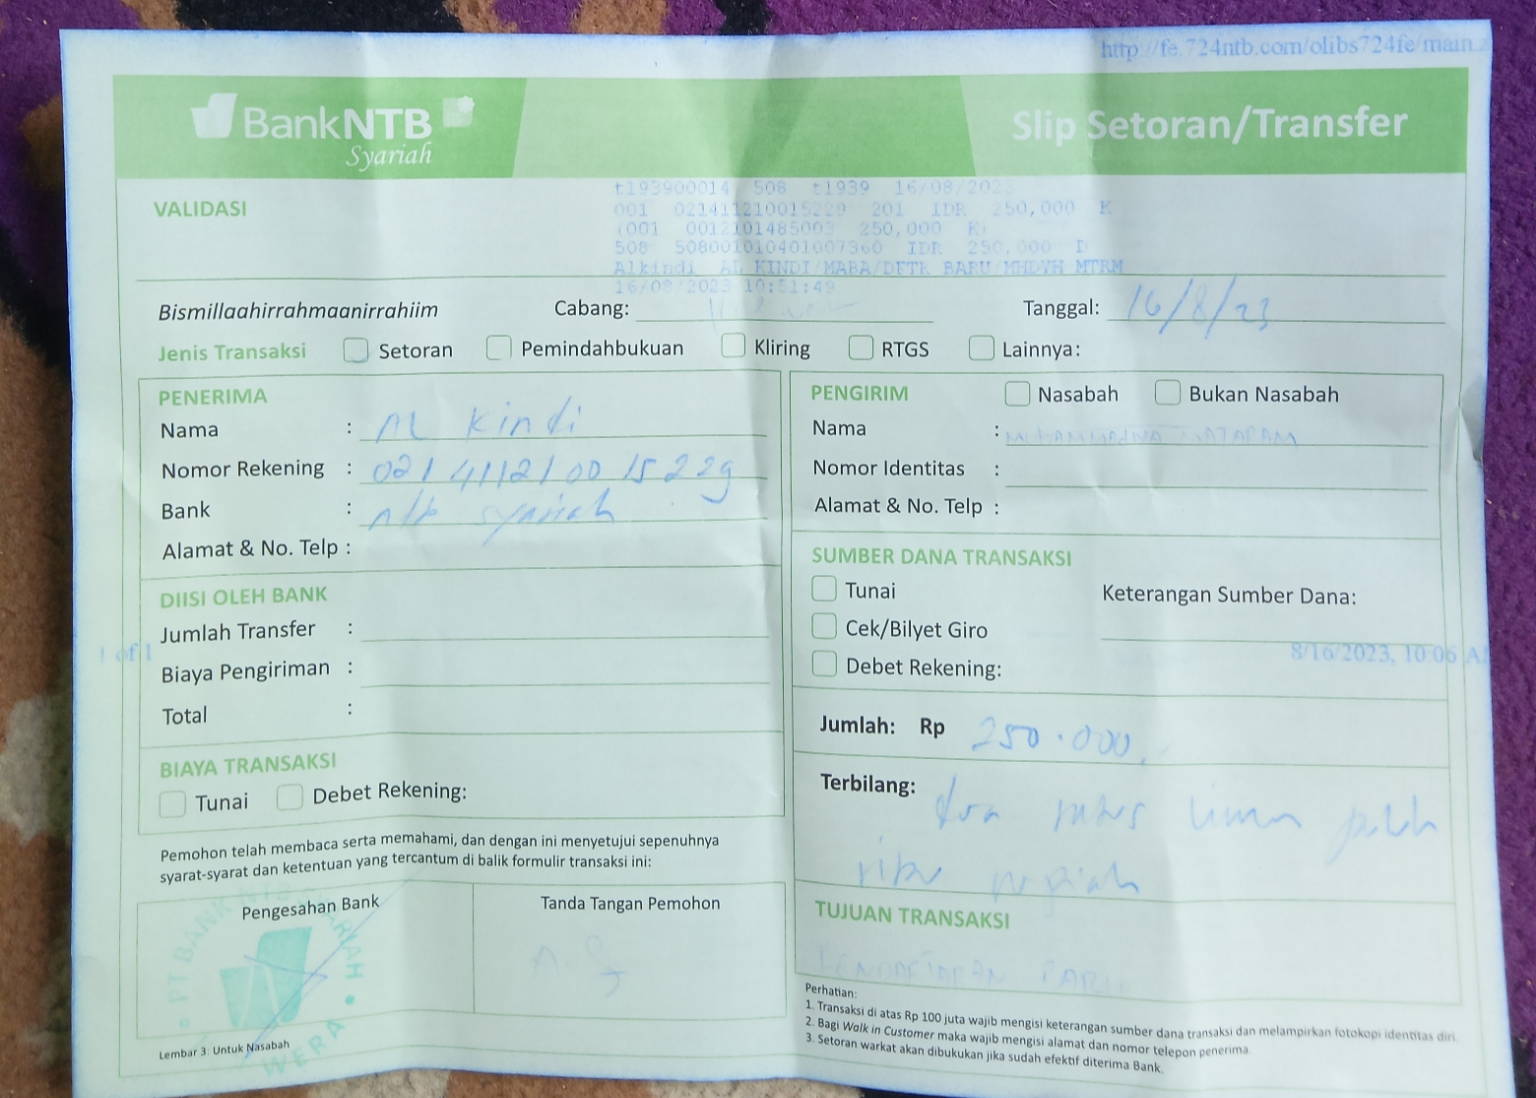 http://fe.724ntb.com/olibs724fe/main.
BankNTB
Syariah
Slip Setoran/Transfer
VALIDASI
t193900014 508 t1939 16/08/2023
001 021411210015229 201 IDR 250,000 K
(001 0012101485003 250,000 K)
508 508001010401007360 IDR 250,000 D
Alkindi AL KINDI/MABA/DFTR BARU/MHDYH MTRM
16/08/2023 10:51:49
Bismillaahirrahmaanirrahiim
Cabang:
Tanggal: 16/8/23
Jenis Transaksi Setoran Pemindahbukuan Kliring RTGS Lainnya:
PENERIMA
Nama : AL Kindi
Nomor Rekening : 021411210015229
Bank : ntb syariah
Alamat & No. Telp :
DIISI OLEH BANK
Jumlah Transfer :
Biaya Pengiriman :
Total :
BIAYA TRANSAKSI
Tunai Debet Rekening:
Pemohon telah membaca serta memahami, dan dengan ini menyetujui sepenuhnya
syarat-syarat dan ketentuan yang tercantum di balik formulir transaksi ini:
Pengesahan Bank
PT BANK NTB SYARIAH
WERA
Tanda Tangan Pemohon
Lembar 3: Untuk Nasabah
PENGIRIM Nasabah Bukan Nasabah
Nama : MATARAM
Nomor Identitas :
Alamat & No. Telp :
SUMBER DANA TRANSAKSI
Tunai
Cek/Bilyet Giro
Debet Rekening:
Keterangan Sumber Dana:
1 of 1
8/16/2023, 10:06 A
Jumlah: Rp 250.000,
Terbilang: dua ratus lima puluh
ribu rupiah
TUJUAN TRANSAKSI
PENDAFTARAN BARU
Perhatian:
1. Transaksi di atas Rp 100 juta wajib mengisi keterangan sumber dana transaksi dan melampirkan fotokopi identitas diri.
2. Bagi Walk in Customer maka wajib mengisi alamat dan nomor telepon penerima.
3. Setoran warkat akan dibukukan jika sudah efektif diterima Bank.